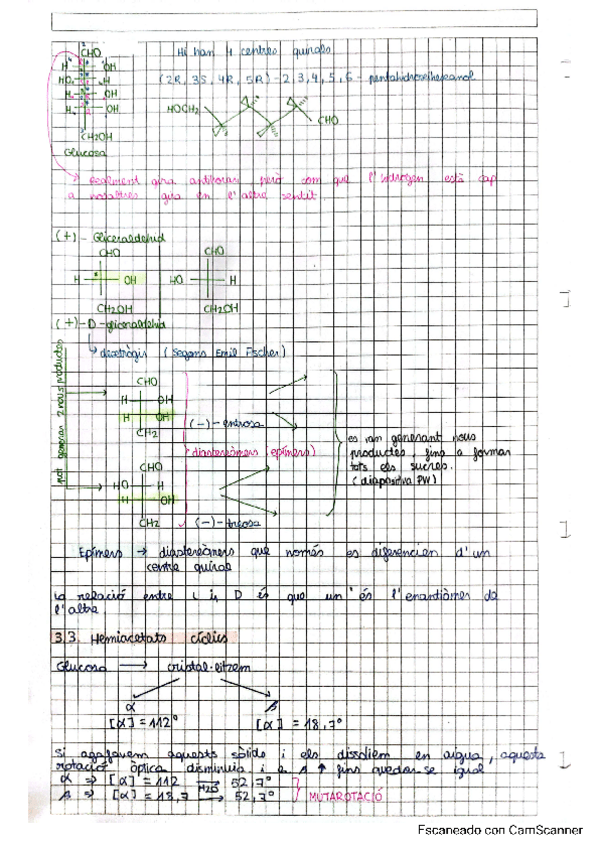 CHO
Hi han 4 centres quirals
H OH
HO H
H OH
H OH
CH2OH
Glucosa
(2R, 3S, 4R, 5R) - 2,3,4,5,6 - pentahidroxihexanal
HOCH2
CHO
realment gira antihorari però com que l'hidrogen està cap
a nosaltres gira en l'altre sentit.
(+) - Gliceraldehid
CHO CHO
H OH HO H
CH2OH CH2OH
(+)-D-gliceraldehid
dextrògir (segons Emil Fischer)
pot generar 2 nous productes
CHO
H OH
H OH
CH2
(-) - eritrosa
diastereòmers (epímers)
CHO
HO H
H OH
CH2
(-) - treosa
es van generant nous
productes, fins a formar
tots els sucres.
(diapositiva PW)
Epímers → diastereòmers que només es diferencien d'un
centre quiral
La relació entre L i D és que un és l'enantiòmer de
l'altre.
3.3. Hemiacetats cíclics
Glucosa → cristal·litzem
α β
[α] = 112° [α] = 18,7°
Si agafavem aquests sòlids i els dissolíem en aigua, aquesta
rotació òptica disminuïa i la β ↑ fins quedar-se igual
α ⇒ [α] = 112 → 52,7°
H2O
β ⇒ [α] = 18,7 → 52,7°
MUTAROTACIÓ
Escaneado con CamScanner